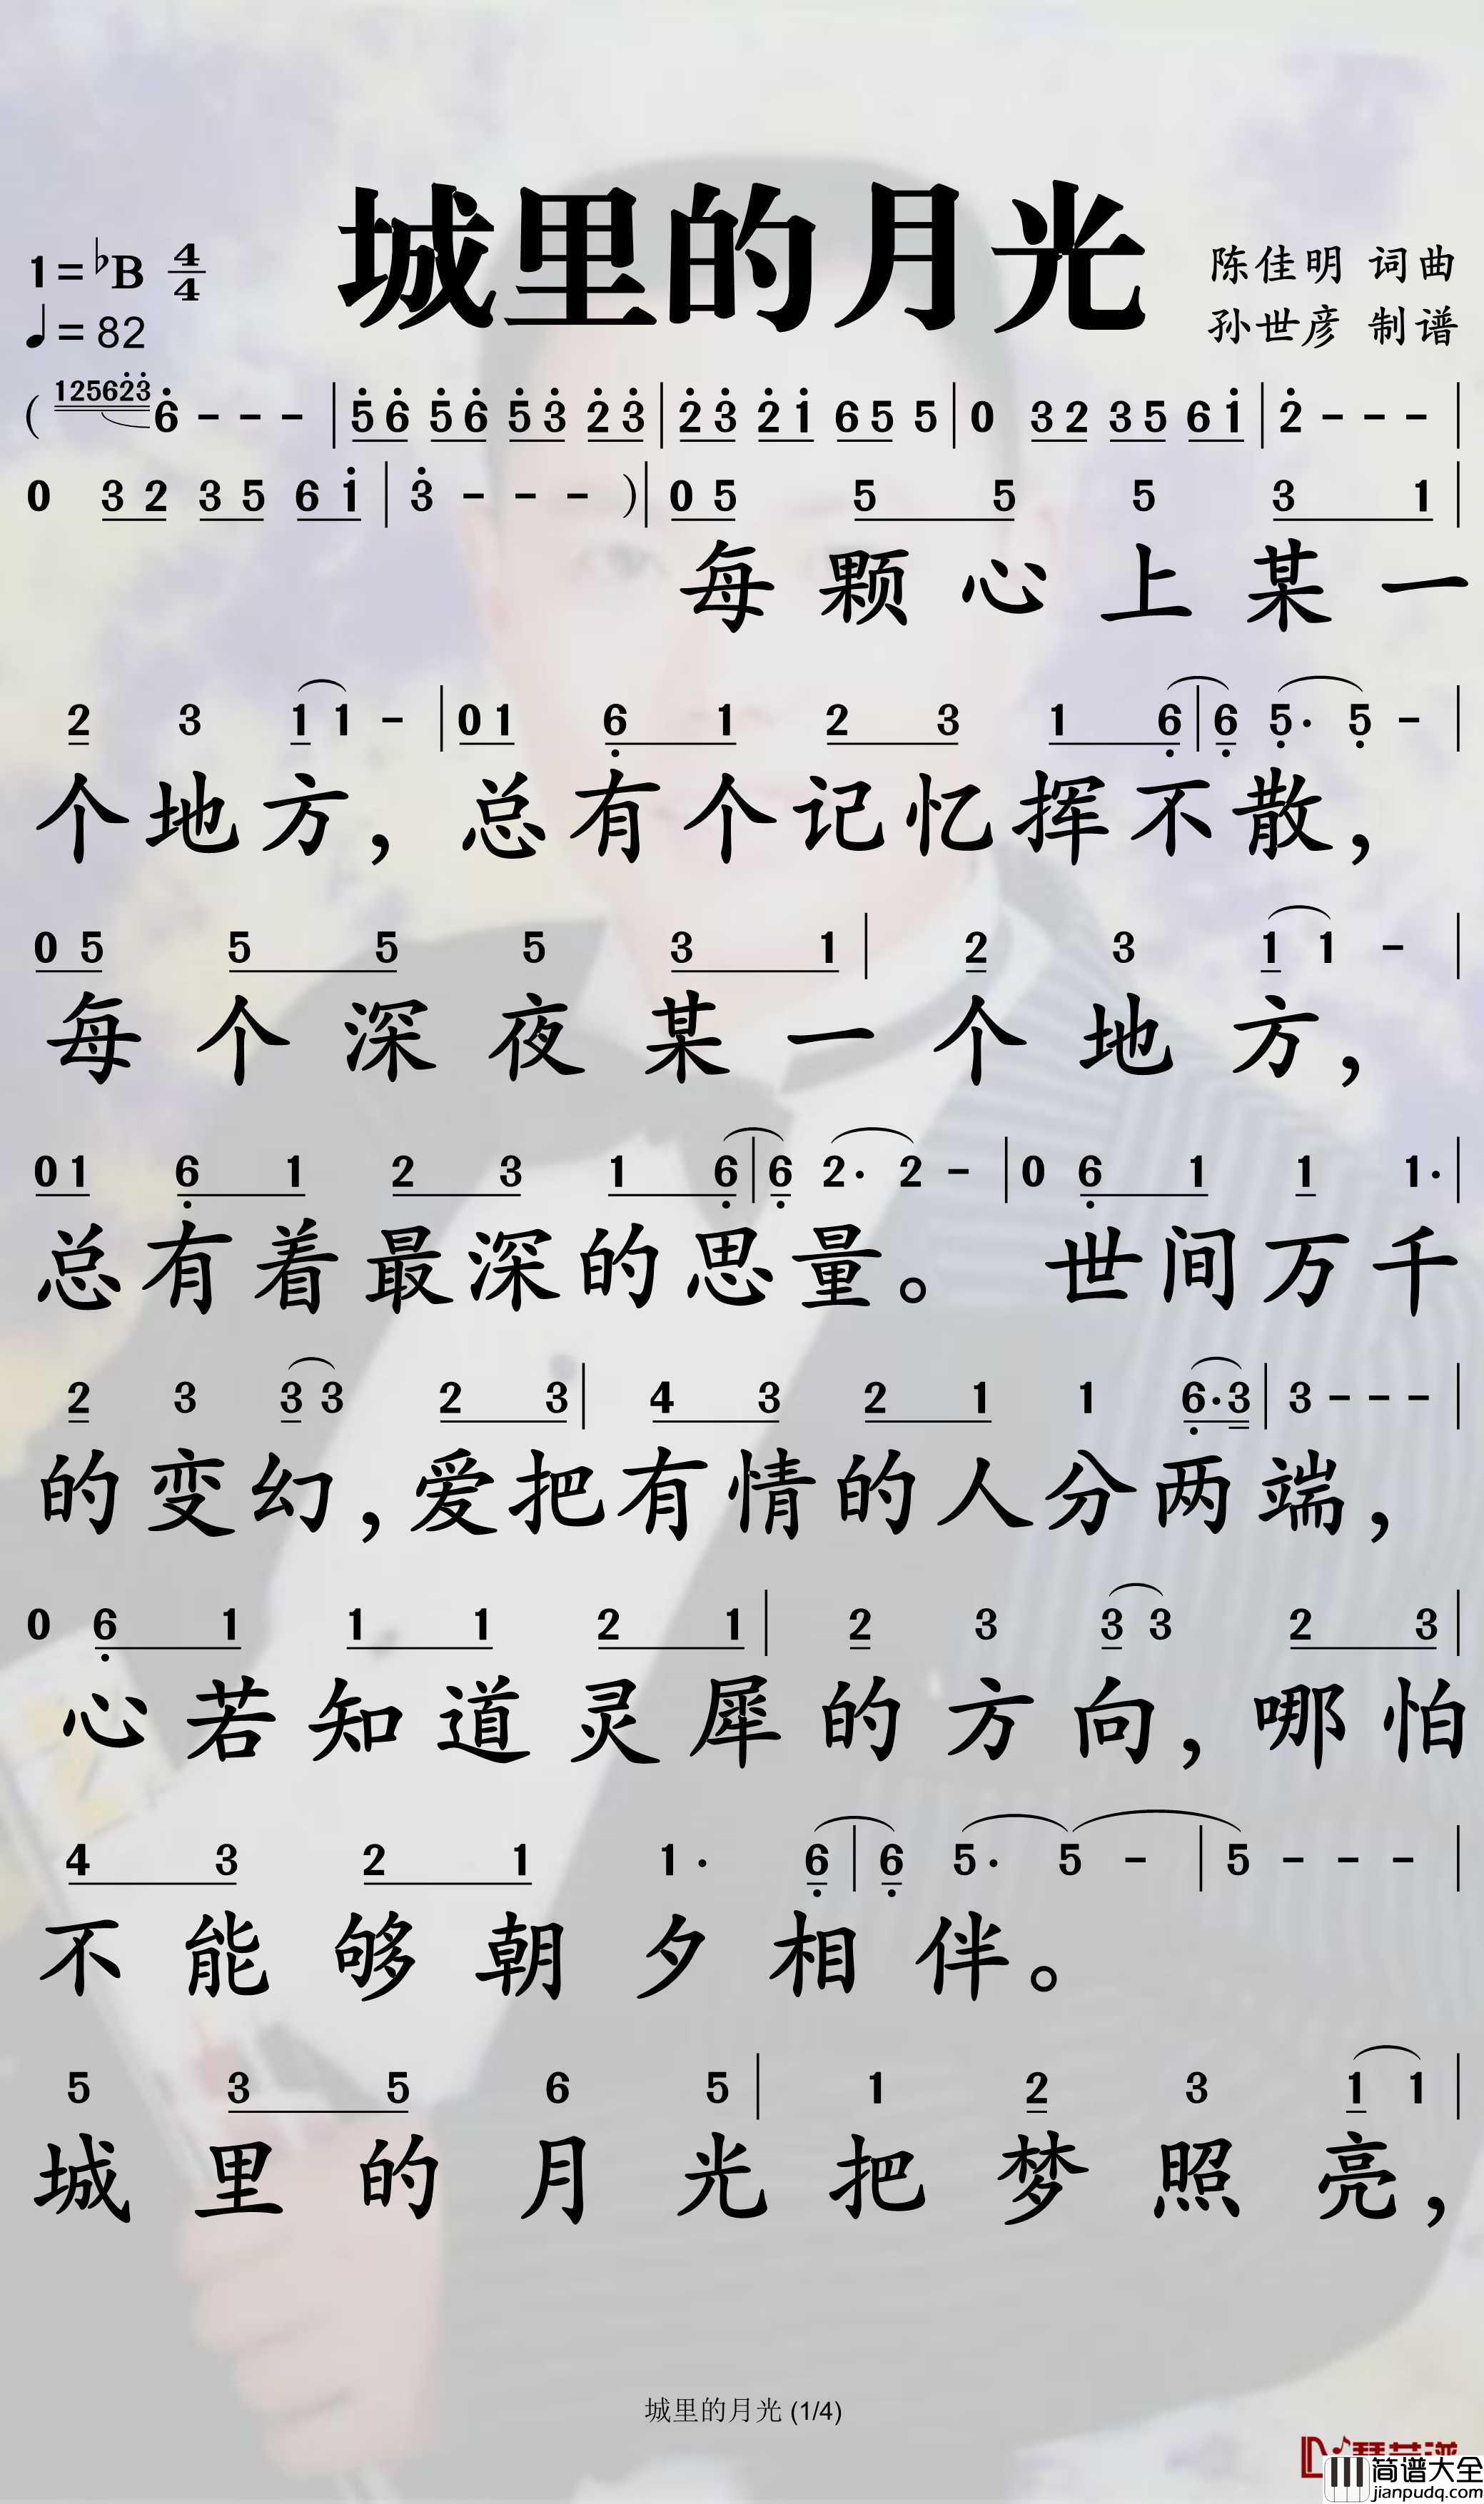 城里的月光
1=♭B 4/4
♩=82
陈佳明 词曲
孙世彦 制谱
( 12562̇3̇ 6̇ - - - | 5̇ 6̇ 5̇ 6̇ 5̇ 3̇ 2̇ 3̇ | 2̇ 3̇ 2̇ 1̇ 6 5 5 | 0 3 2 3 5 6 1̇ | 2̇ - - - |
0 3 2 3 5 6 1̇ | 3̇ - - - ) | 0 5 5 5 5 3 1 |
每颗心上某一
2 3 1 1 - | 0 1 6̣ 1 2 3 1 6̣ | 6̣ 5̣· 5̣ - |
个地方，总有个记忆挥不散，
0 5 5 5 5 3 1 | 2 3 1 1 - |
每个深夜某一个地方，
0 1 6̣ 1 2 3 1 6̣ | 6̣ 2· 2 - | 0 6̣ 1 1 1· |
总有着最深的思量。世间万千
2 3 3 3 2 3 | 4 3 2 1 1 6̣·3 | 3 - - - |
的变幻，爱把有情的人分两端，
0 6̣ 1 1 1 2 1 | 2 3 3 3 2 3 |
心若知道灵犀的方向，哪怕
4 3 2 1 1· 6̣ | 6̣ 5· 5 - | 5 - - - |
不能够朝夕相伴。
5 3 5 6 5 | 1 2 3 1 1 |
城里的月光把梦照亮，
城里的月光 (1/4)
简谱大全
jianpudq.com